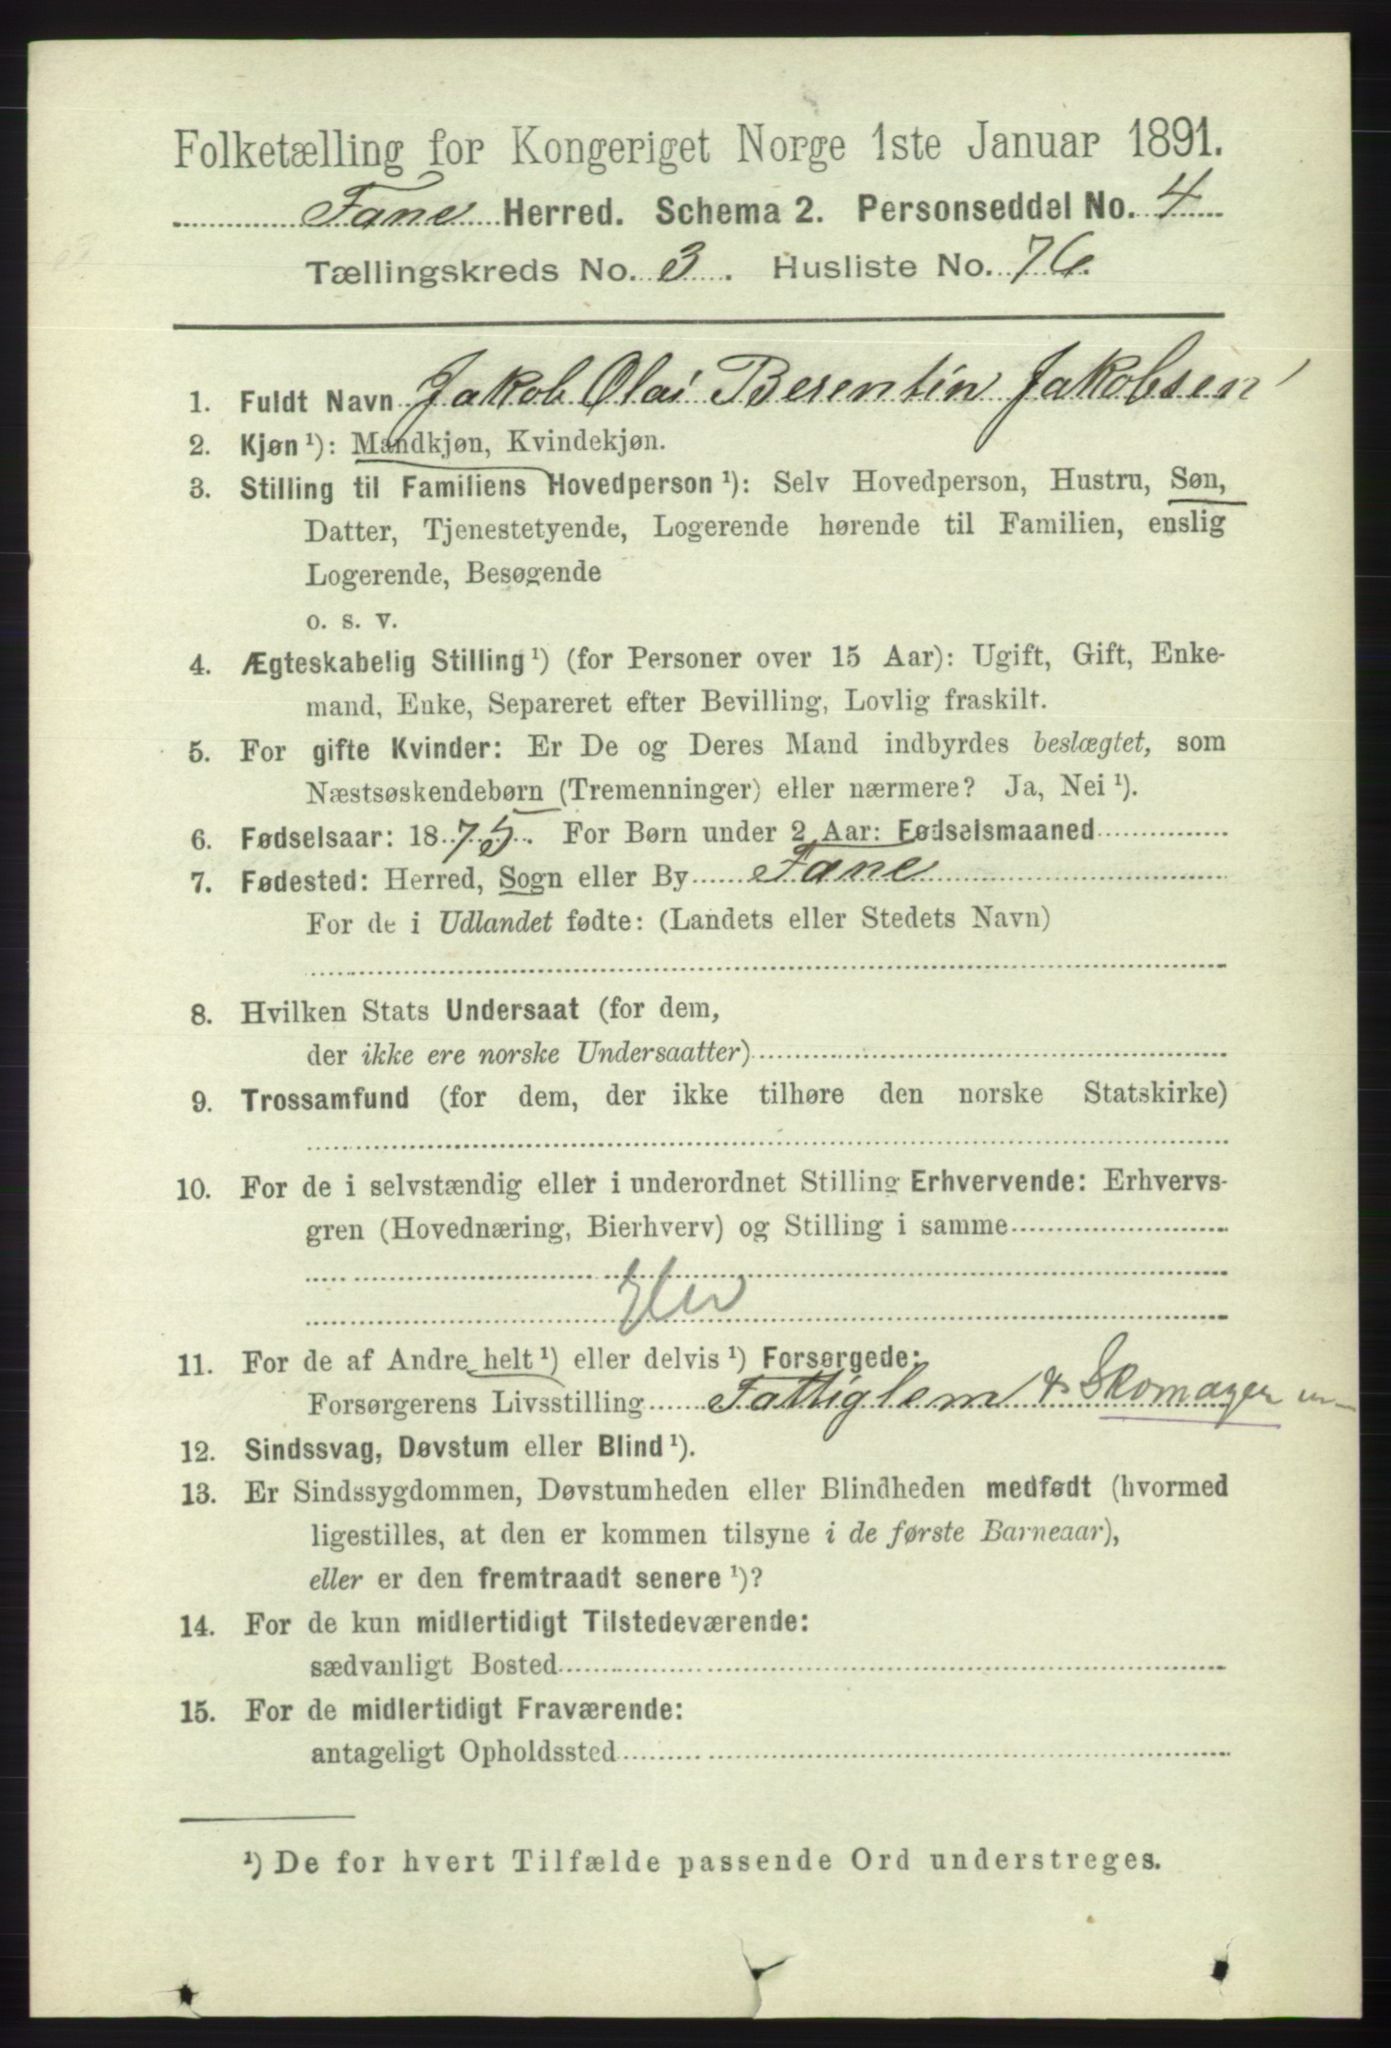 Folketælling for Kongeriget Norge 1ste Januar 1891.
Fane Herred. Schema 2. Personseddel No. 4
Tællingskreds No. 3. Husliste No. 76.
1. Fuldt Navn Jakob Olai Berentin Jakobsen
2. Kjøn ¹): Mandkjøn, Kvindekjøn.
3. Stilling til Familiens Hovedperson ¹): Selv Hovedperson, Hustru, Søn,
Datter, Tjenestetyende, Logerende hørende til Familien, enslig
Logerende, Besøgende
o. s. v.
4. Ægteskabelig Stilling ¹) (for Personer over 15 Aar): Ugift, Gift, Enke-
mand, Enke, Separeret efter Bevilling, Lovlig fraskilt.
5. For gifte Kvinder: Er De og Deres Mand indbyrdes beslægtet, som
Næstsøskendebørn (Tremenninger) eller nærmere? Ja, Nei ¹).
6. Fødselsaar: 1875. For Børn under 2 Aar: Fødselsmaaned
7. Fødested: Herred, Sogn eller By Fane
For de i Udlandet fødte: (Landets eller Stedets Navn)
8. Hvilken Stats Undersaat (for dem,
der ikke ere norske Undersaatter)
9. Trossamfund (for dem, der ikke tilhøre den norske Statskirke)
10. For de i selvstændig eller i underordnet Stilling Erhvervende: Erhvervs-
gren (Hovednæring, Bierhverv) og Stilling i samme
11. For de af Andre helt ¹) eller delvis ¹) Forsørgede:
Forsørgerens Livsstilling Fattiglem & Skomager
12. Sindssvag, Døvstum eller Blind ¹).
13. Er Sindssygdommen, Døvstumheden eller Blindheden medfødt (hvormed
ligestilles, at den er kommen tilsyne i de første Barneaar),
eller er den fremtraadt senere ¹)?
14. For de kun midlertidigt Tilstedeværende:
sædvanligt Bosted
15. For de midlertidigt Fraværende:
antageligt Opholdssted
¹) De for hvert Tilfælde passende Ord understreges.